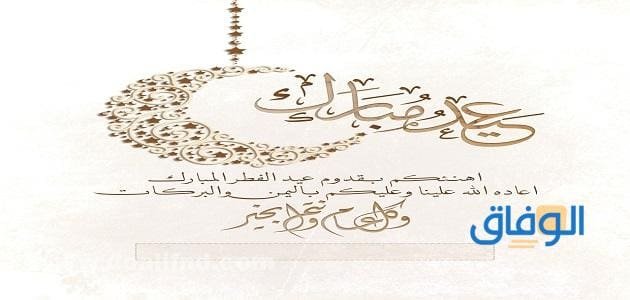 عيد مبارك
اهنئكم بقدوم عيد الفطر المبارك
اعاده الله علينا وعليكم باليمن والبركات
وكل عام وأنتم بخير
الوفاق